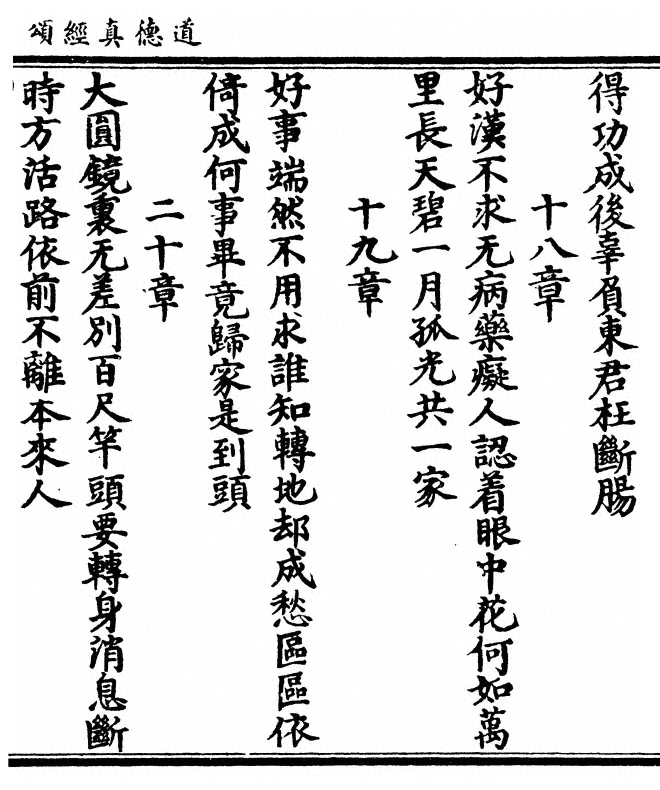 道德真經頌
得功成後辜負東君枉斷腸
十八章
好漢不求无病藥癡人認着眼中花何如萬
里長天碧一月孤光共一家
十九章
好事端然不用求誰知轉地却成愁區區依
倚成何事畢竟歸家是到頭
二十章
大圓鏡裏无差別百尺竿頭要轉身消息斷
時方活路依前不離本來人